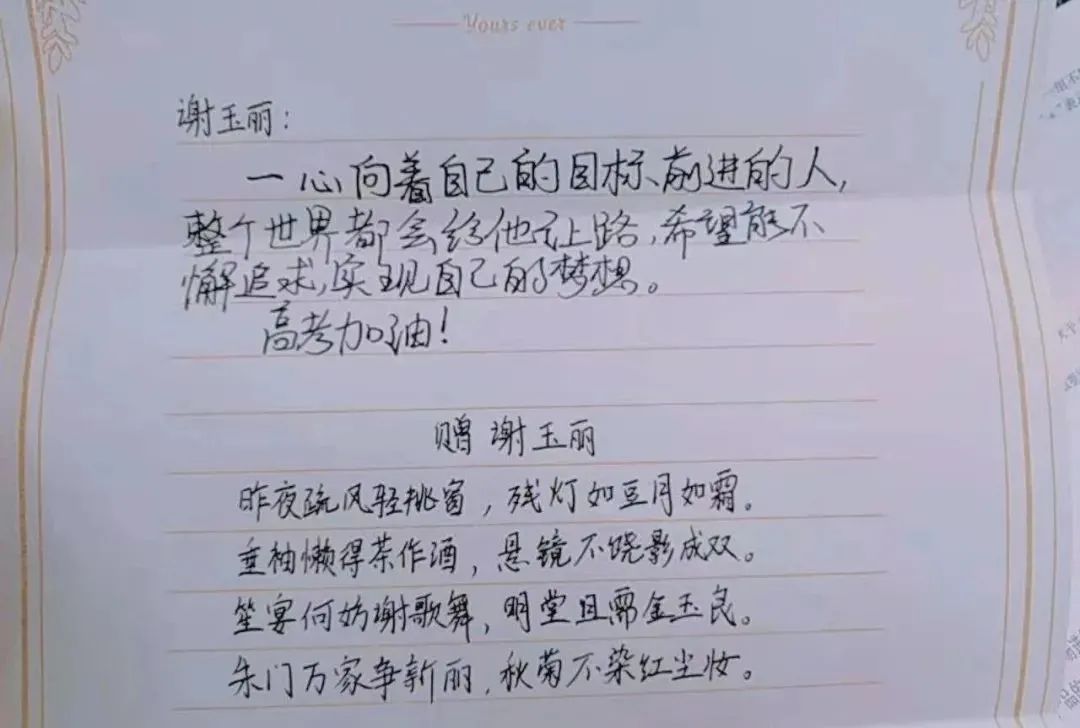 Yours ever
谢玉丽:
一心向着自己的目标前进的人,
整个世界都会给他让路,希望能不
懈追求,实现自己的梦想。
高考加油!
赠谢玉丽
昨夜疏风轻挑窗,残灯如豆月如霜。
垂袖懒得茶作酒,悬镜不饶影成双。
笙宴何妨谢歌舞,明堂且需金玉良。
朱门万家争新丽,秋菊不染红尘妆。